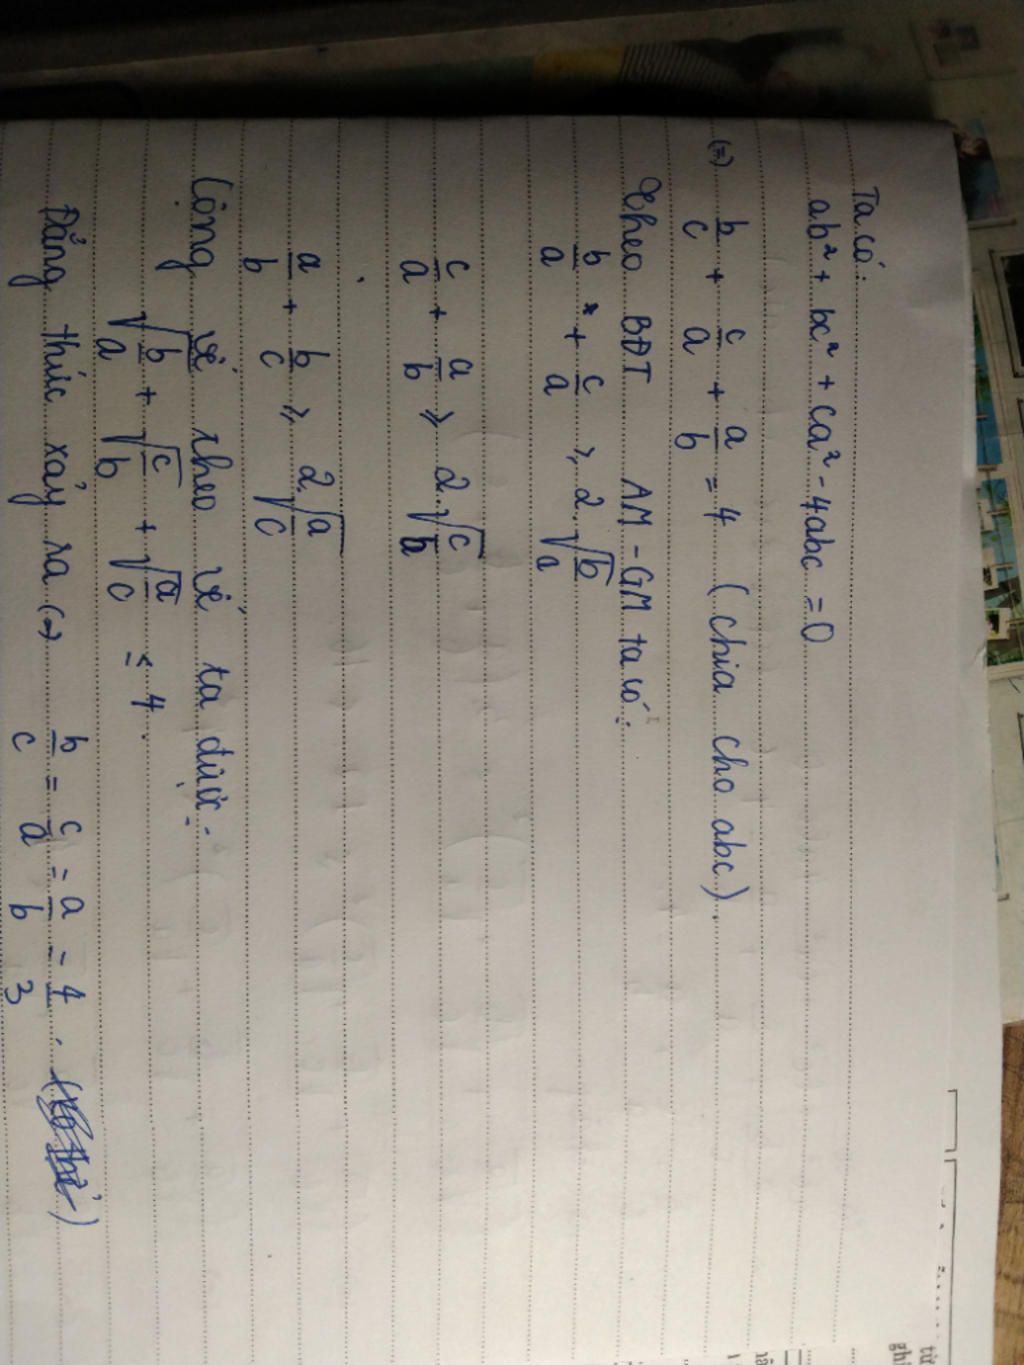 Ta có:
ab² + bc² + ca² - 4abc = 0
(=) b/c + c/a + a/b = 4 (chia cho abc).
Theo BĐT AM-GM ta có:
b/a + c/a ≥ 2.√(b/a)
c/a + a/b ≥ 2.√(c/b)
a/b + b/c ≥ 2.√(a/c)
Cộng vế theo vế ta được:
√(b/a) + √(c/b) + √(a/c) ≤ 4.
Đẳng thức xảy ra (=) b/c = c/a = a/b = 4/3.